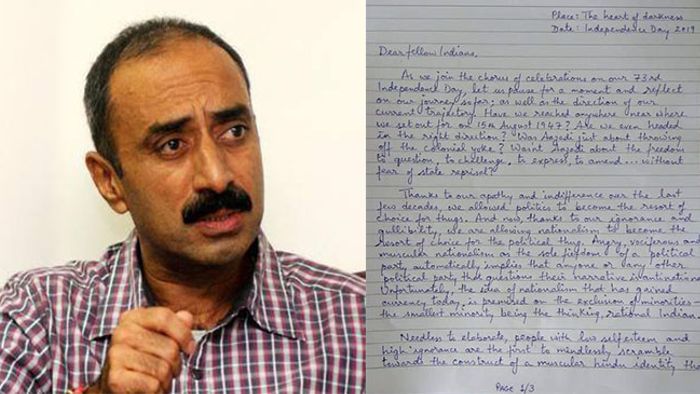 Place: The heart of darkness
Date: Independence Day 2019
Dear fellow Indians,
As we join the chorus of celebrations on our 73rd
Independence Day, let us pause for a moment and reflect
on our journey so far; as well as the direction of our
current trajectory. Have we reached anywhere near where
we set out for on 15th August 1947? Are we even headed
in the right direction? Was Aazadi just about throwing
off the colonial yoke? Wasn't Aazadi about the freedom
to question, to challenge, to express, to amend... without
fear of state reprisal?
Thanks to our apathy and indifference over the last
few decades, we allowed politics to become the resort of
choice for thugs. And now, thanks to our ignorance and
gullibility, we are allowing nationalism to become the
resort of choice for the political thug. Angry, vociferous and
muscular nationalism as the sole fiefdom of a political
party, automatically implies that anyone or any other
political party that questions their narrative is antinational.
Unfortunately, the idea of nationalism that has gained
currency today, is premised on the exclusion of minorities
the smallest minority being the thinking, rational Indian.
Needless to elaborate, people with low self esteem and
high ignorance are the first to mindlessly scramble
towards the construct of a muscular hindu identity the
PAGE 1/3